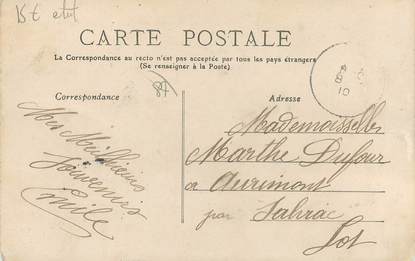 15 €
CARTE POSTALE
La Correspondance au recto n'est pas acceptée par tous les pays étrangers
(Se renseigner à la Poste)
87
Correspondance
Adresse
10
Mes Meilleurs
Souvenirs
Mademoiselle
Marthe Dufour
Aurimont
par
Lot